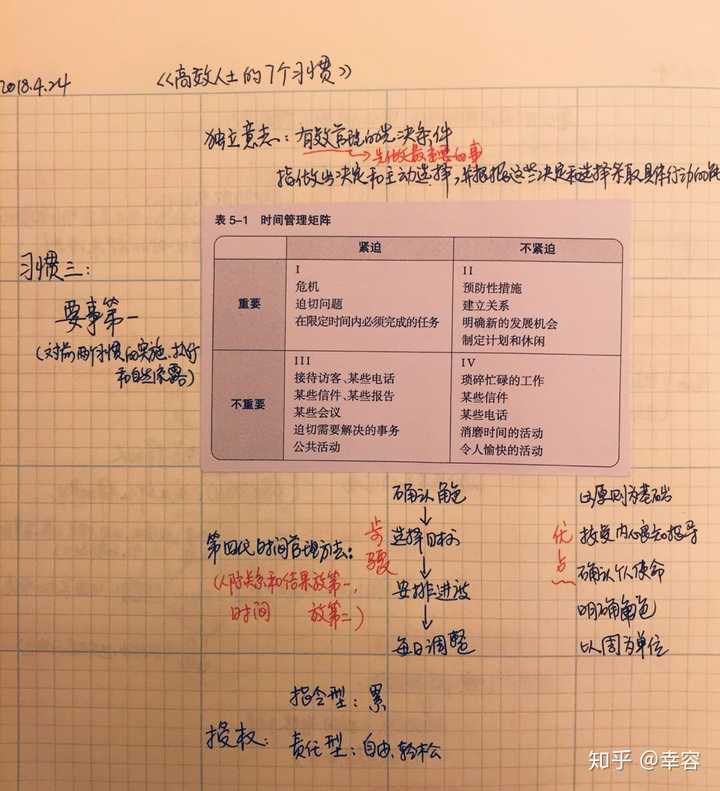 2018.4.24
《高效人士的7个习惯》
独立意志：有效管理的先决条件
→先做最重要的事
指做出决定和主动选择，并根据这些决定和选择采取具体行动的能
表 5-1 时间管理矩阵
紧迫
不紧迫
重要
I
危机
迫切问题
在限定时间内必须完成的任务
II
预防性措施
建立关系
明确新的发展机会
制定计划和休闲
不重要
III
接待访客、某些电话
某些信件、某些报告
某些会议
迫切需要解决的事务
公共活动
IV
琐碎忙碌的工作
某些信件
某些电话
消磨时间的活动
令人愉快的活动
习惯三：
要事第一
（对前两个习惯的实施、执行
和自然流露）
第四代时间管理方法：
（人际关系和结果放第一，
时间 放第二）
步骤
确认角色
↓
选择目标
↓
安排进度
↓
每日调整
优点
以原则为基础
接受内心良知指导
确认个人使命
明确角色
以周为单位
授权：
指令型：累
责任型：自由、轻松
知乎 @幸容